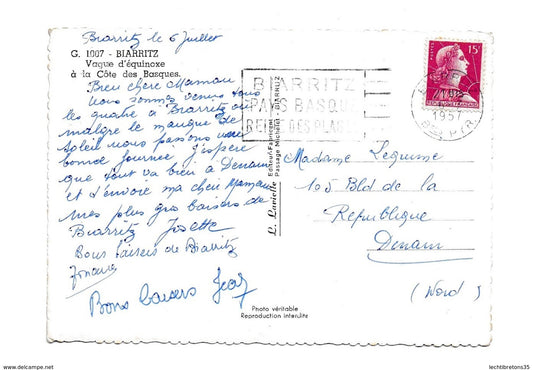 Biarritz le 6 Juillet
G. 1907 - BIARRITZ
Vague d'équinoxe
à la Côte des Basques.
Bien chère Maman
Nous sommes venus tous
les quatre à Biarritz et
malgré le manque de
soleil nous passons une
bonne journée. J'espère
que tout va bien à Denain
et t'envoie ma chère Maman
mes plus gros baisers de
Biarritz Josette
Bons baisers de Biarritz
Bons baisers
BIARRITZ
PAYS BASQUE
REINE DES PLAGES
POSTES
15F
REPUBLIQUE FRANÇAISE
1957
Madame Lequime
105 Bld de la
République
Denain
(Nord)
Passage Michelet - BIARRITZ
Photo véritable
Reproduction interdite
https://www.delcampe.net
lechtibretons35